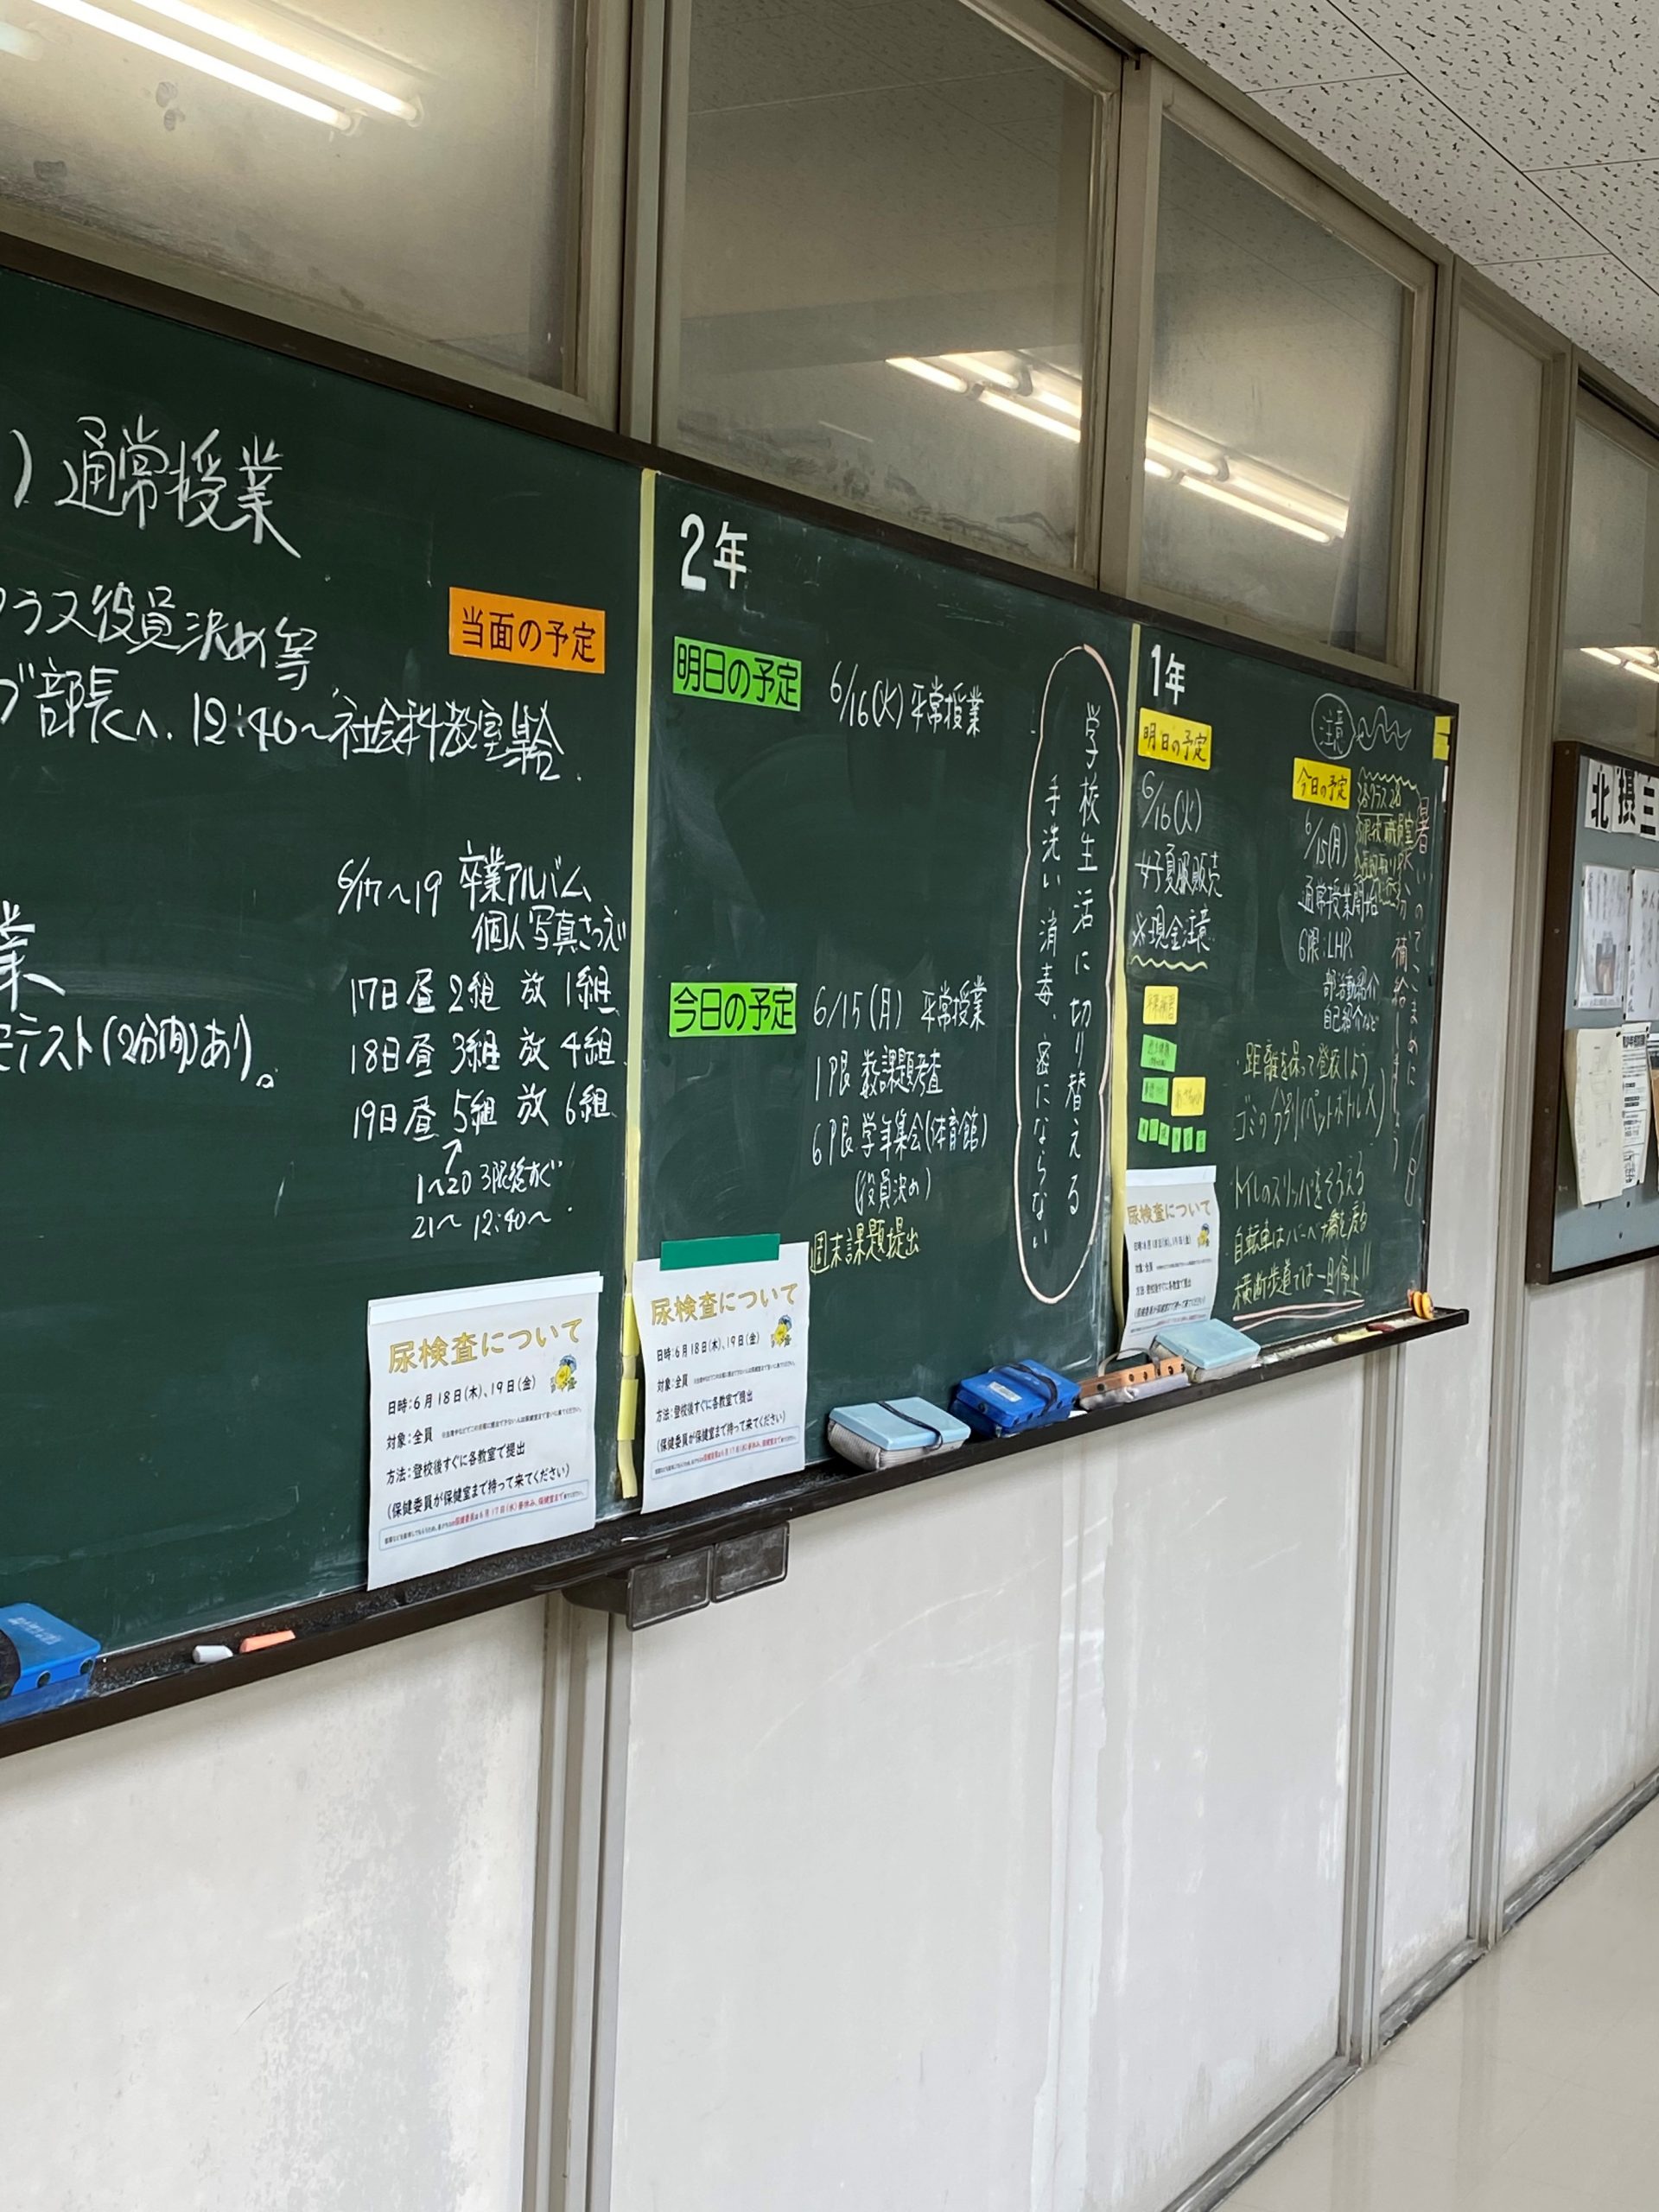 ）通常授業
クラス役員決め等
部長へ. 12:40～社会科教室集合.
当面の予定
業
テスト(2分間)あり。
6/17～19 卒業アルバム
個人写真さつえい
17日 昼 2組 放 1組
18日 昼 3組 放 4組
19日 昼 5組 放 6組
1～20 3限終すぐ
21～ 12:40～
尿検査について
日時:6月18日(木)、19日(金)
対象:全員
方法:登校後すぐに各教室で提出
(保健委員が保健室まで持って来てください)
2年
明日の予定
6/16(火) 平常授業
学校生活に切り替える
手洗い消毒、密にならない
今日の予定
6/15(月) 平常授業
1限 数課題考査
6限 学年集会(体育館)
(役員決め)
週末課題提出
尿検査について
日時:6月18日(木)、19日(金)
対象:全員
方法:登校後すぐに各教室で提出
(保健委員が保健室まで持って来てください)
1年
明日の予定
6/16(火)
女子夏服販売
※現金注意
注意
今日の予定
6/15(月)
通常授業開始
6限:LHR
部活動紹介
自己紹介など
暑いのでこまめに
水分補給しましょう
・距離を保って登校しよう
ゴミの分別(ペットボトル×)
・トイレのスリッパをそろえる
・自転車は
横断歩道では一旦停止!!
尿検査について
日時:6月18日(木)、19日(金)
対象:全員
方法:登校後すぐに各教室で提出
(保健委員が保健室まで持って来てください)
北摂三